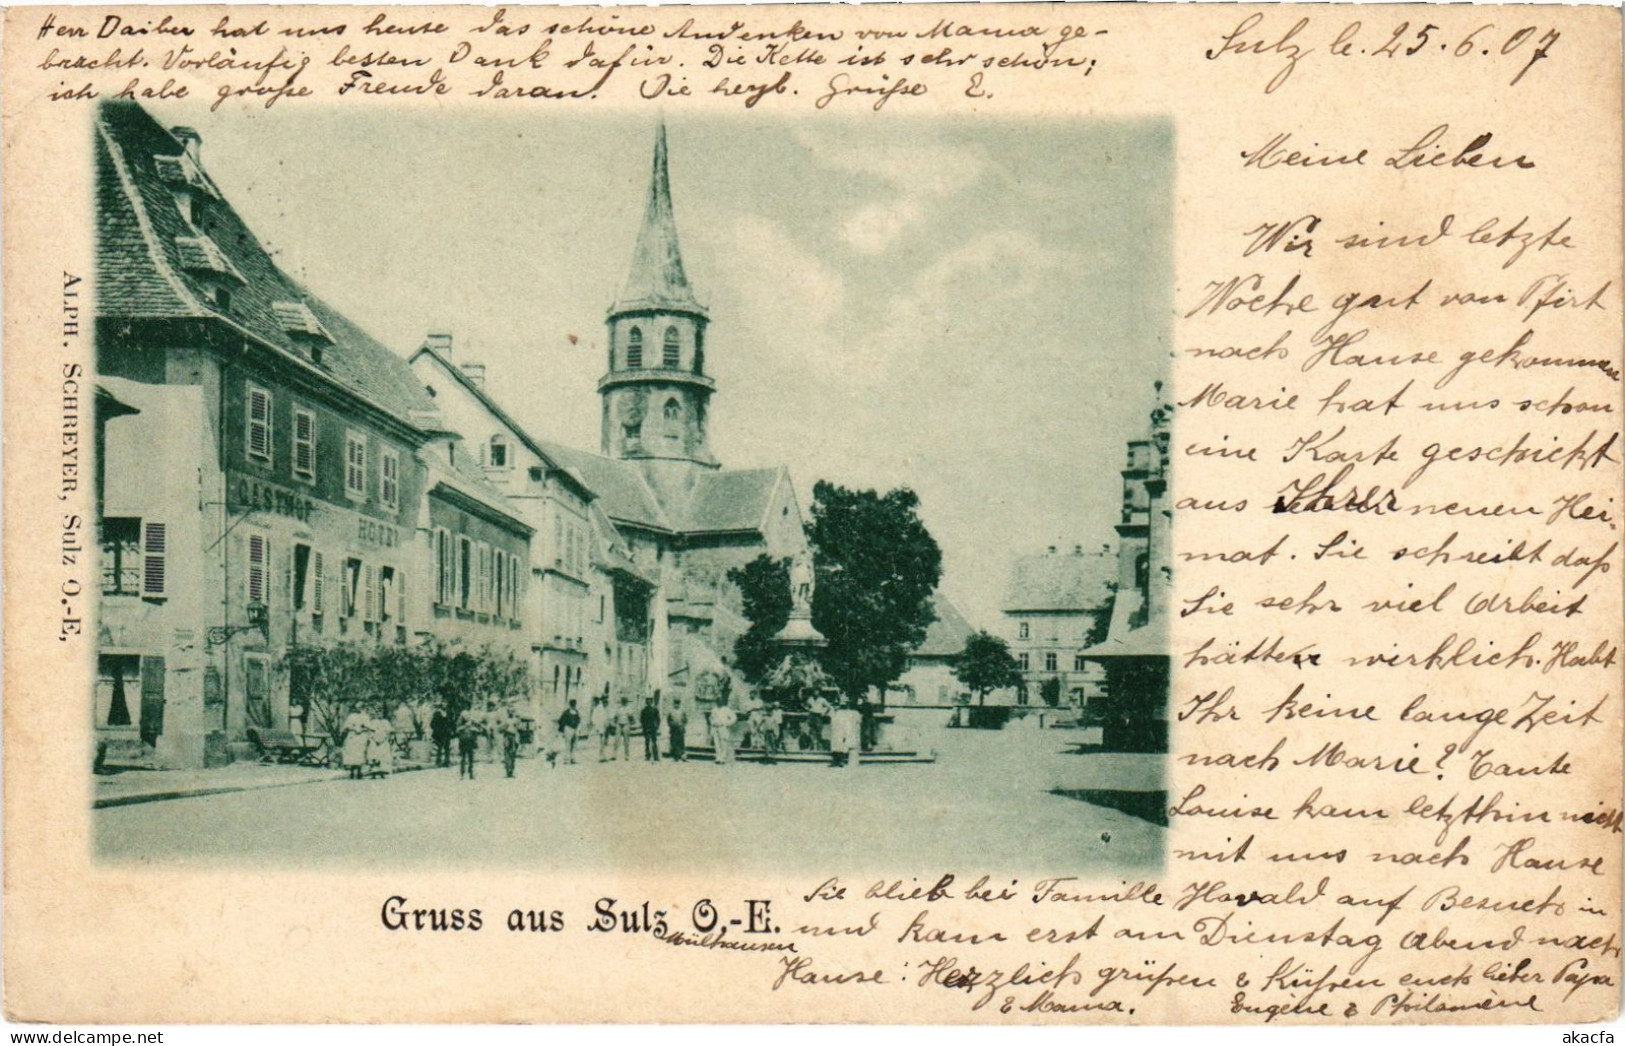 Herr Daiber hat uns heute das schöne Andenken von Mama ge-
bracht. Vorläufig besten Dank dafür. Die Kette ist sehr schön;
ich habe große Freude daran. Die herzl. Grüße E.
Sulz le. 25.6.07
Meine Lieben
Wir sind letzte
Woche gut von Pfirt
nach Hause gekommen
Marie hat uns schon
eine Karte geschickt
aus Ihrer neuen Hei-
mat. Sie schreibt daß
Sie sehr viel Arbeit
hätten wirklich. Habt
Ihr keine lange Zeit
nach Marie? Tante
Louise kam letzthin nicht
mit uns nach Hause
Sie blieb bei Familie Havald auf Besuch in
Mülhausen
und kam erst am Dienstag Abend nach
Hause: Herzlich grüßen & Küßen euch lieber Papa
& Mama. Eugène & Philomène
GASTHOF HOTEL
ALPH. SCHREYER, Sulz O.-E,
Gruss aus Sulz O.-E.
akacfa